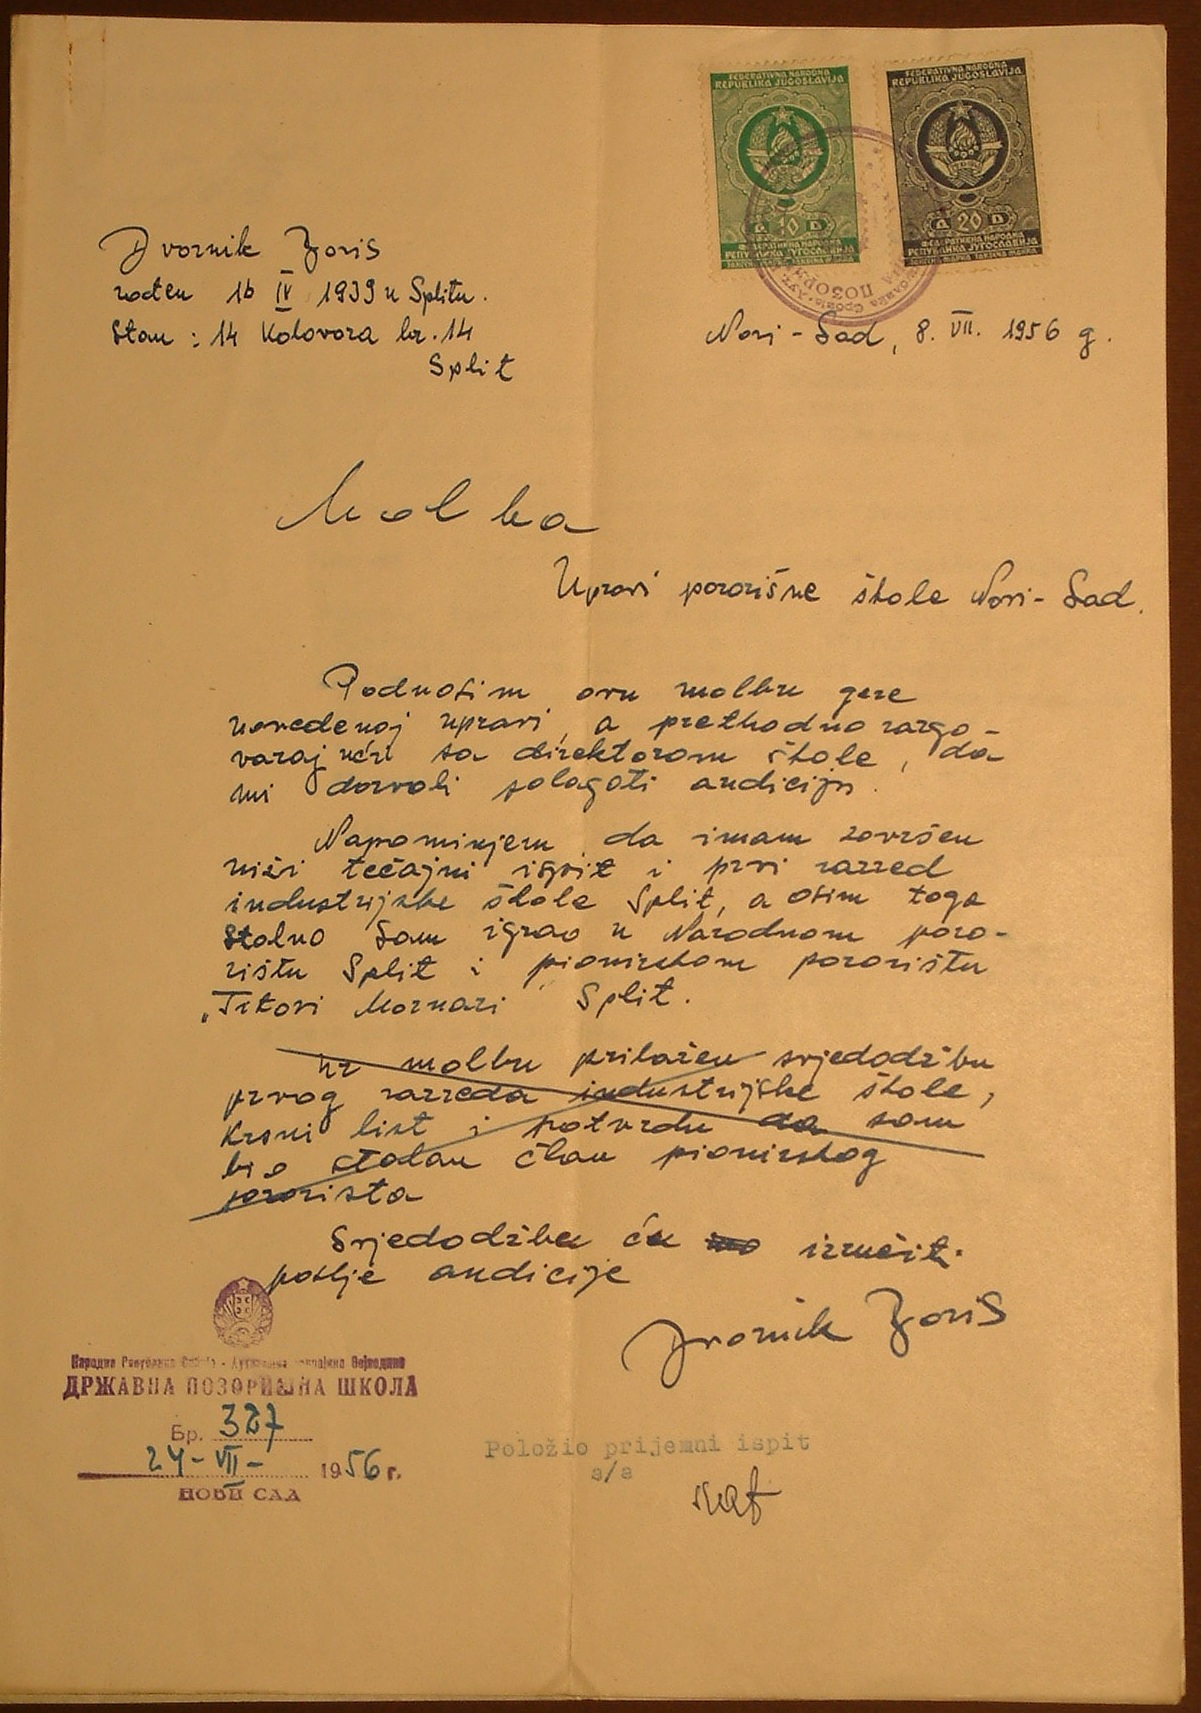 FEDERATIVNA NARODNA
REPUBLIKA JUGOSLAVIJA
Д 10 D
ФЕДЕРАТИВНА НАРОДНА
РЕПУБЛИКА ЈУГОСЛАВИЈА
FEDERATIVNA NARODNA
REPUBLIKA JUGOSLAVIJA
Д 20 D
ФЕДЕРАТИВНА НАРОДНА
РЕПУБЛИКА ЈУГОСЛАВИЈА
Dvornik Boris
rođen 16 IV 1939 u Splitu.
Stan : 14 Kolovoza br. 14
Split
Novi - Sad, 8. VII. 1956 g.
Molba
Upravi pozorišne škole Novi - Sad.
Podnosim ovu molbu gore
navedenoj upravi, a prethodno razgo-
varajući sa direktorom škole, da
mi dozvoli polagati audiciju.
Napominjem da imam završen
niži tečajni ispit i prvi razred
industrijske škole Split, a osim toga
stalno sam igrao u Narodnom pozo-
rištu Split i pionirskom pozorištu
„Titovi Mornari" Split.
Uz molbu prilažem svjedodžbu
prvog razreda industrijske škole,
Krsni list i potvrdu da sam
bio stalan član pionirskog
pozorišta
Svjedodžbu ću izručit.
poslje audicije
Dvornik Boris
Народна Република Србија - Аутономна покрајина Војводина
ДРЖАВНА ПОЗОРИШНА ШКОЛА
Бр. 327
24 - VII - 1956 г.
НОВИ САД
Položio prijemni ispit
a/a